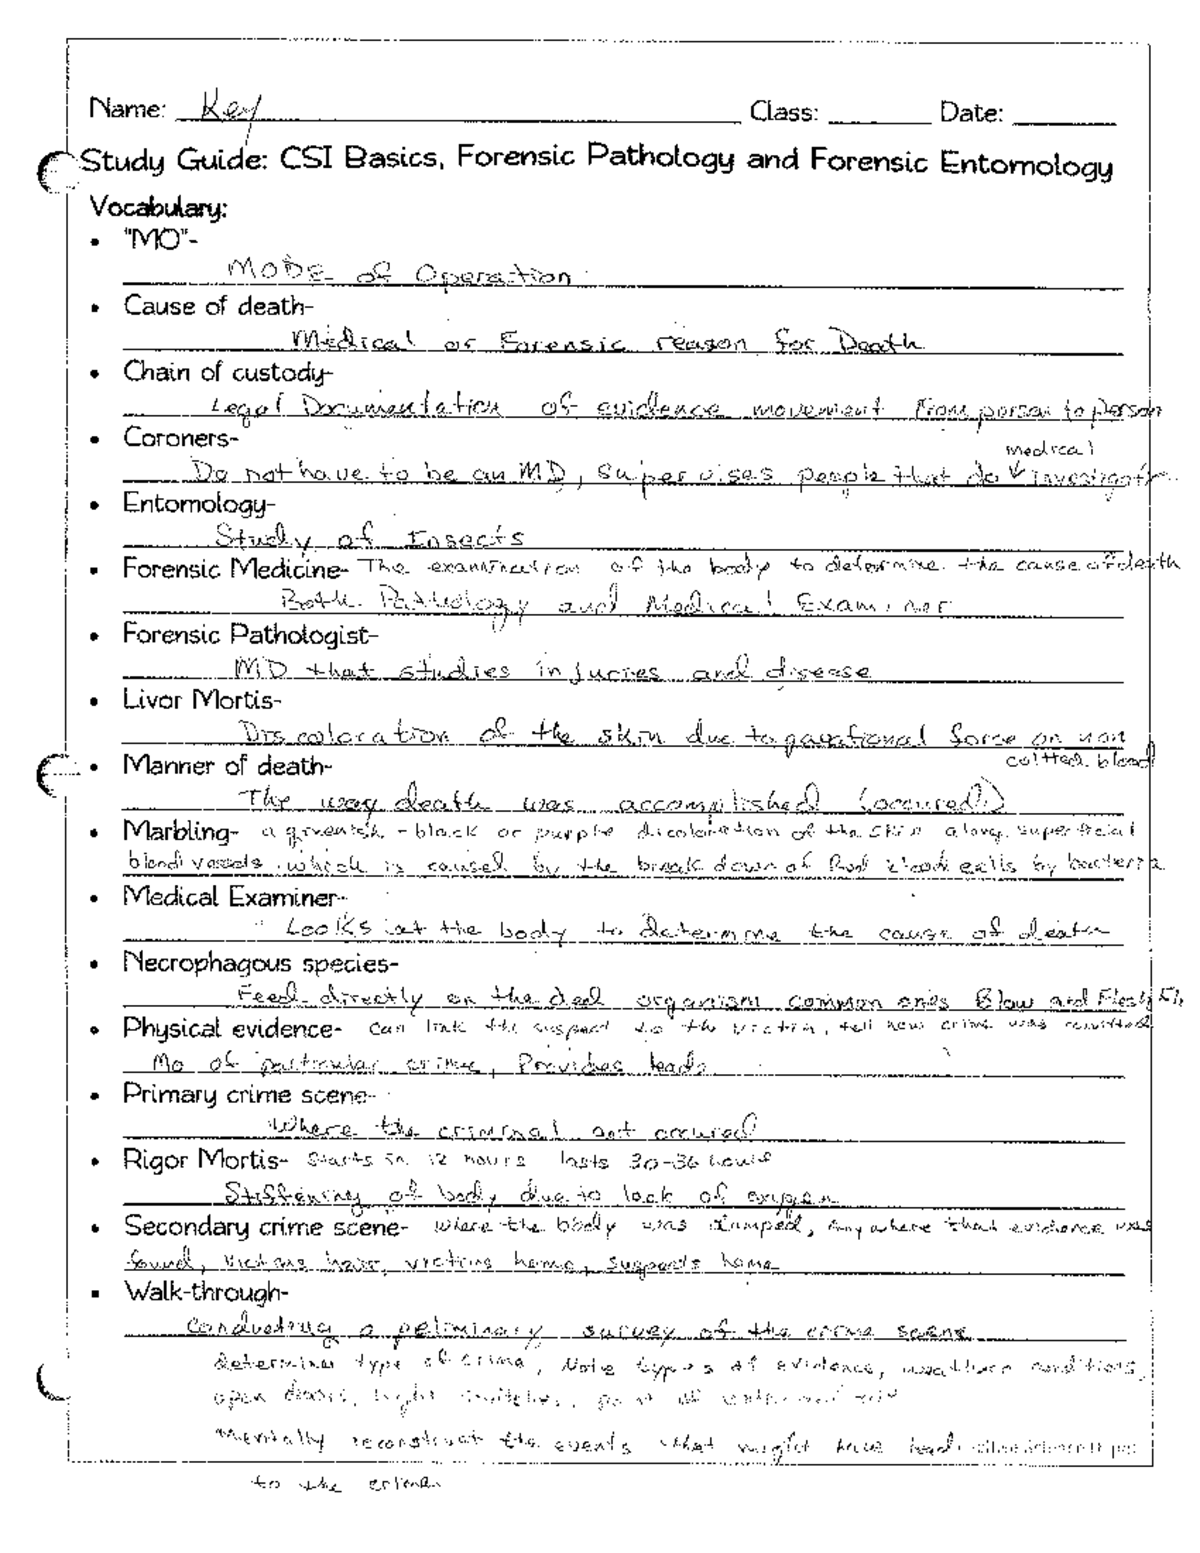 Name: Key Class: Date:
Study Guide: CSI Basics, Forensic Pathology and Forensic Entomology
Vocabulary:
• "MO"-
MODE of Operation
• Cause of death-
Medical or Forensic reason for Death
• Chain of custody-
Legal Documentation of evidence movement From person to person
• Coroners-
medical
Do not have to be an MD, supervises people that do ↓
• Entomology-
Study of Insects
• Forensic Medicine- The examination of the body to determine the cause of death
Both Pathology and Medical Examiner
• Forensic Pathologist-
MD that studies injuries and disease
• Livor Mortis-
Discoloration of the skin due to force on non
blood
• Manner of death-
The way death was accomplished (occured)
• Marbling- a greenish-black or purple dicoloration of the skin along superficial
blood vessels which is caused by the break down of Red blood cells by bacteria
• Medical Examiner-
Looks at the body to determine the cause of death
• Necrophagous species-
Feed directly on the ded organism common ones Blow and Flesh
• Physical evidence- can link the suspect to the victim, tell how crime was
Mo of particular crime, Provides leads
• Primary crime scene-
Where the criminal act occured
• Rigor Mortis- Starts in 12 hours lasts 30-36 hours
Stiffening of body due to lack of oxygen
• Secondary crime scene- where the body was dumped, Anywhere that evidence was
found, victims home, suspects home
▪ Walk-through-
Conducting a peliminary survey of the crime scene
determine type of crime, Note types of evidence, conditions,
open doors, light switches, point of
Mentally reconstruct the events that might have lead
to the crime